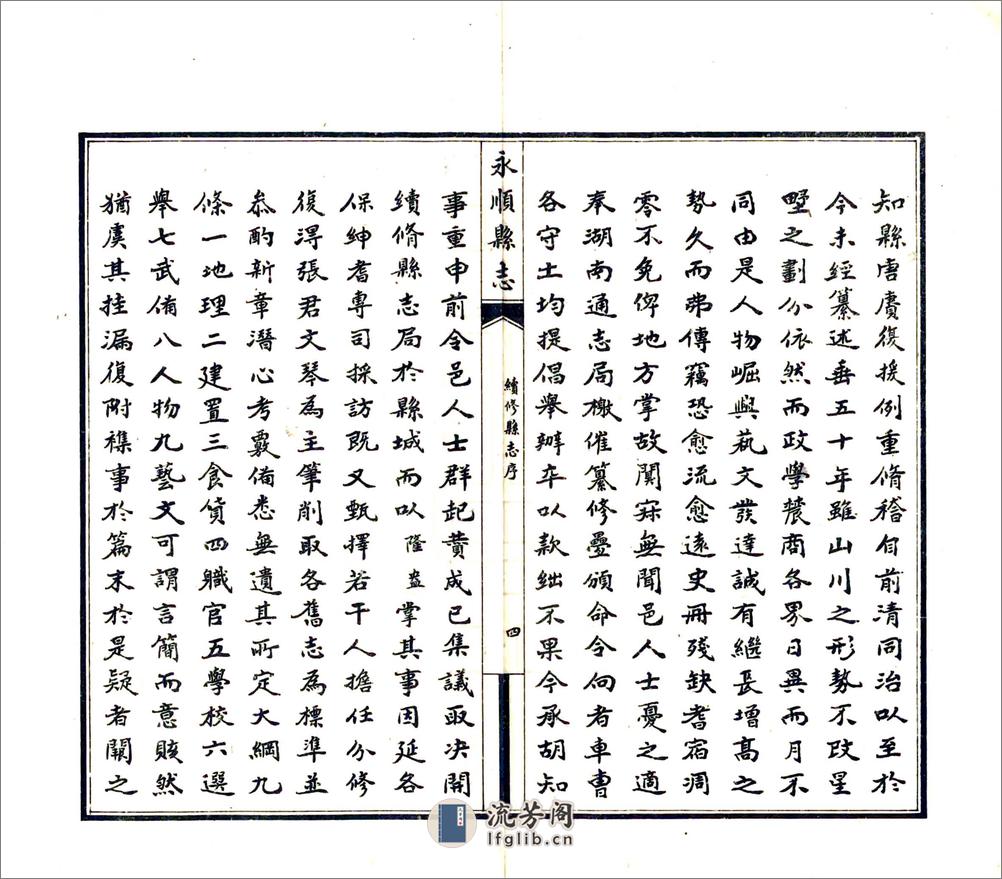 知縣唐賡復援例重脩稽自前清同治以至於
今未經纂述垂五十年雖山川之形勢不改星
墅之劃分依然而政學農商各界日異而月不
同由是人物崛興蓺文發達誠有繼長增高之
勢久而弗傳竊恐愈流愈遠史冊殘缺耆宿凋
零不免俾地方掌故闃寂無聞邑人士憂之適
奉湖南通志局檄催纂修疊頒命令向者車曹
各守土均提倡舉辦卒以款絀不果今承胡知
永順縣志
續修縣志序
四
事重申前令邑人士群起贊成已集議取决開
續脩縣志局於縣城而以隆益掌其事因延各
保紳耆專司採訪既又甄擇若干人擔任分修
復得張君文琴為主筆削取各舊志為標準並
叅酌新章潛心考覈備悉無遺其所定大綱九
條一地理二建置三食貨四職官五學校六選
舉七武備八人物九藝文可謂言簡而意賅然
猶虞其挂漏復附襍事於篇末於是疑者闕之
流芳阁
lfglib.cn